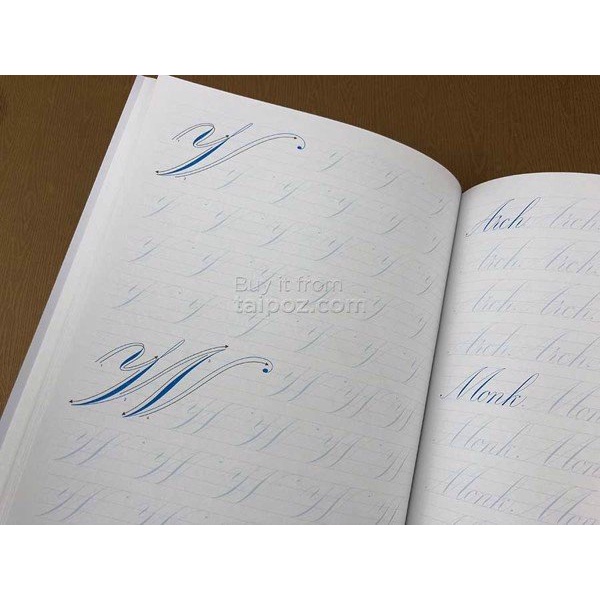 V
Buy it from
taipoz.com
W
Arch Arch
Arch. Arch.
Arch. Arch.
Arch. Arch.
Monk. Mon
Monk. Mon
Monk. Mon
Monk. Mon